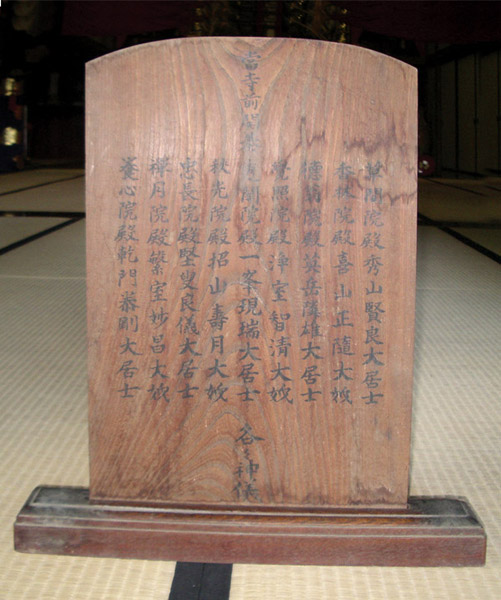 院殿秀山賢良大居士
院殿喜山正隨大姊
院殿英岳隆雄大居士
覺照院殿淨室智清大姊
當寺前
院殿一峯現瑞大居士 各々神儀
秋光院殿招山壽月大姊
忠長院殿堅叟良儀大居士
禪月院殿繁室妙昌大姊
養心院殿乾門恭剛大居士